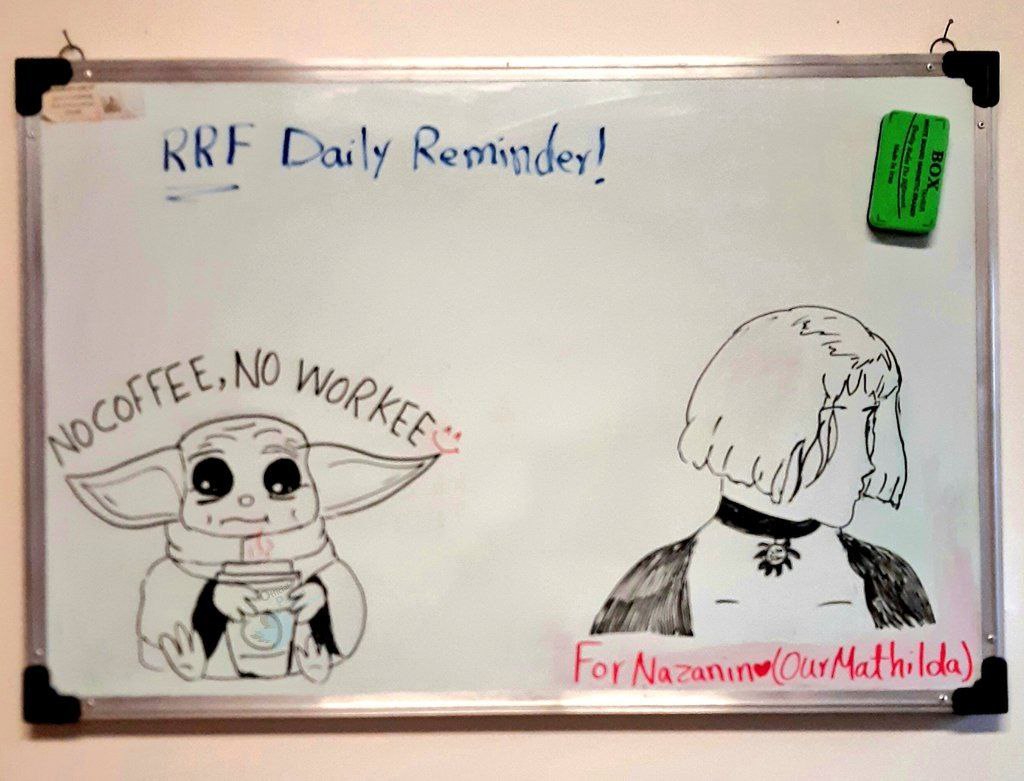 RRF Daily Reminder!
BOX
Made in Iran
NO COFFEE, NO WORKEE
For Nazanin❤(OurMathilda)